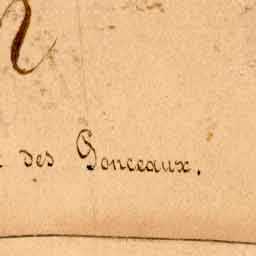 des Gonceaux.